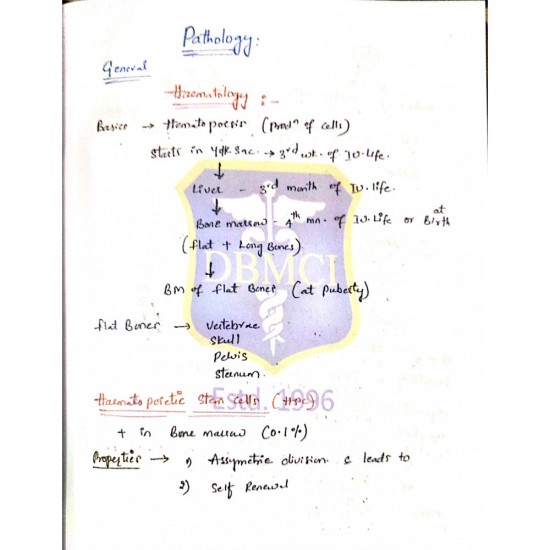 Pathology:
General
Haematology :-
Basics → Hemato poesis (prodn of cells)
Starts in Yolk Sac. → 3rd wk. of IU. life.
↓
Liver - 3rd month of IU. life.
↓
Bone marrow - 4th mn. of IU. Life or at Birth
(flat + Long Bones).
↓
BM of flat Bones (at puberty)
flat Bones → Vertebrae
Skull
Pelvis
Sternum.
Haemato poietic Stem Cells (HPC)
+ in Bone marrow (0.1%)
Properties → 1) Assymetric division. c leads to
2) Self Renewal
DBMCI
Estd. 1996